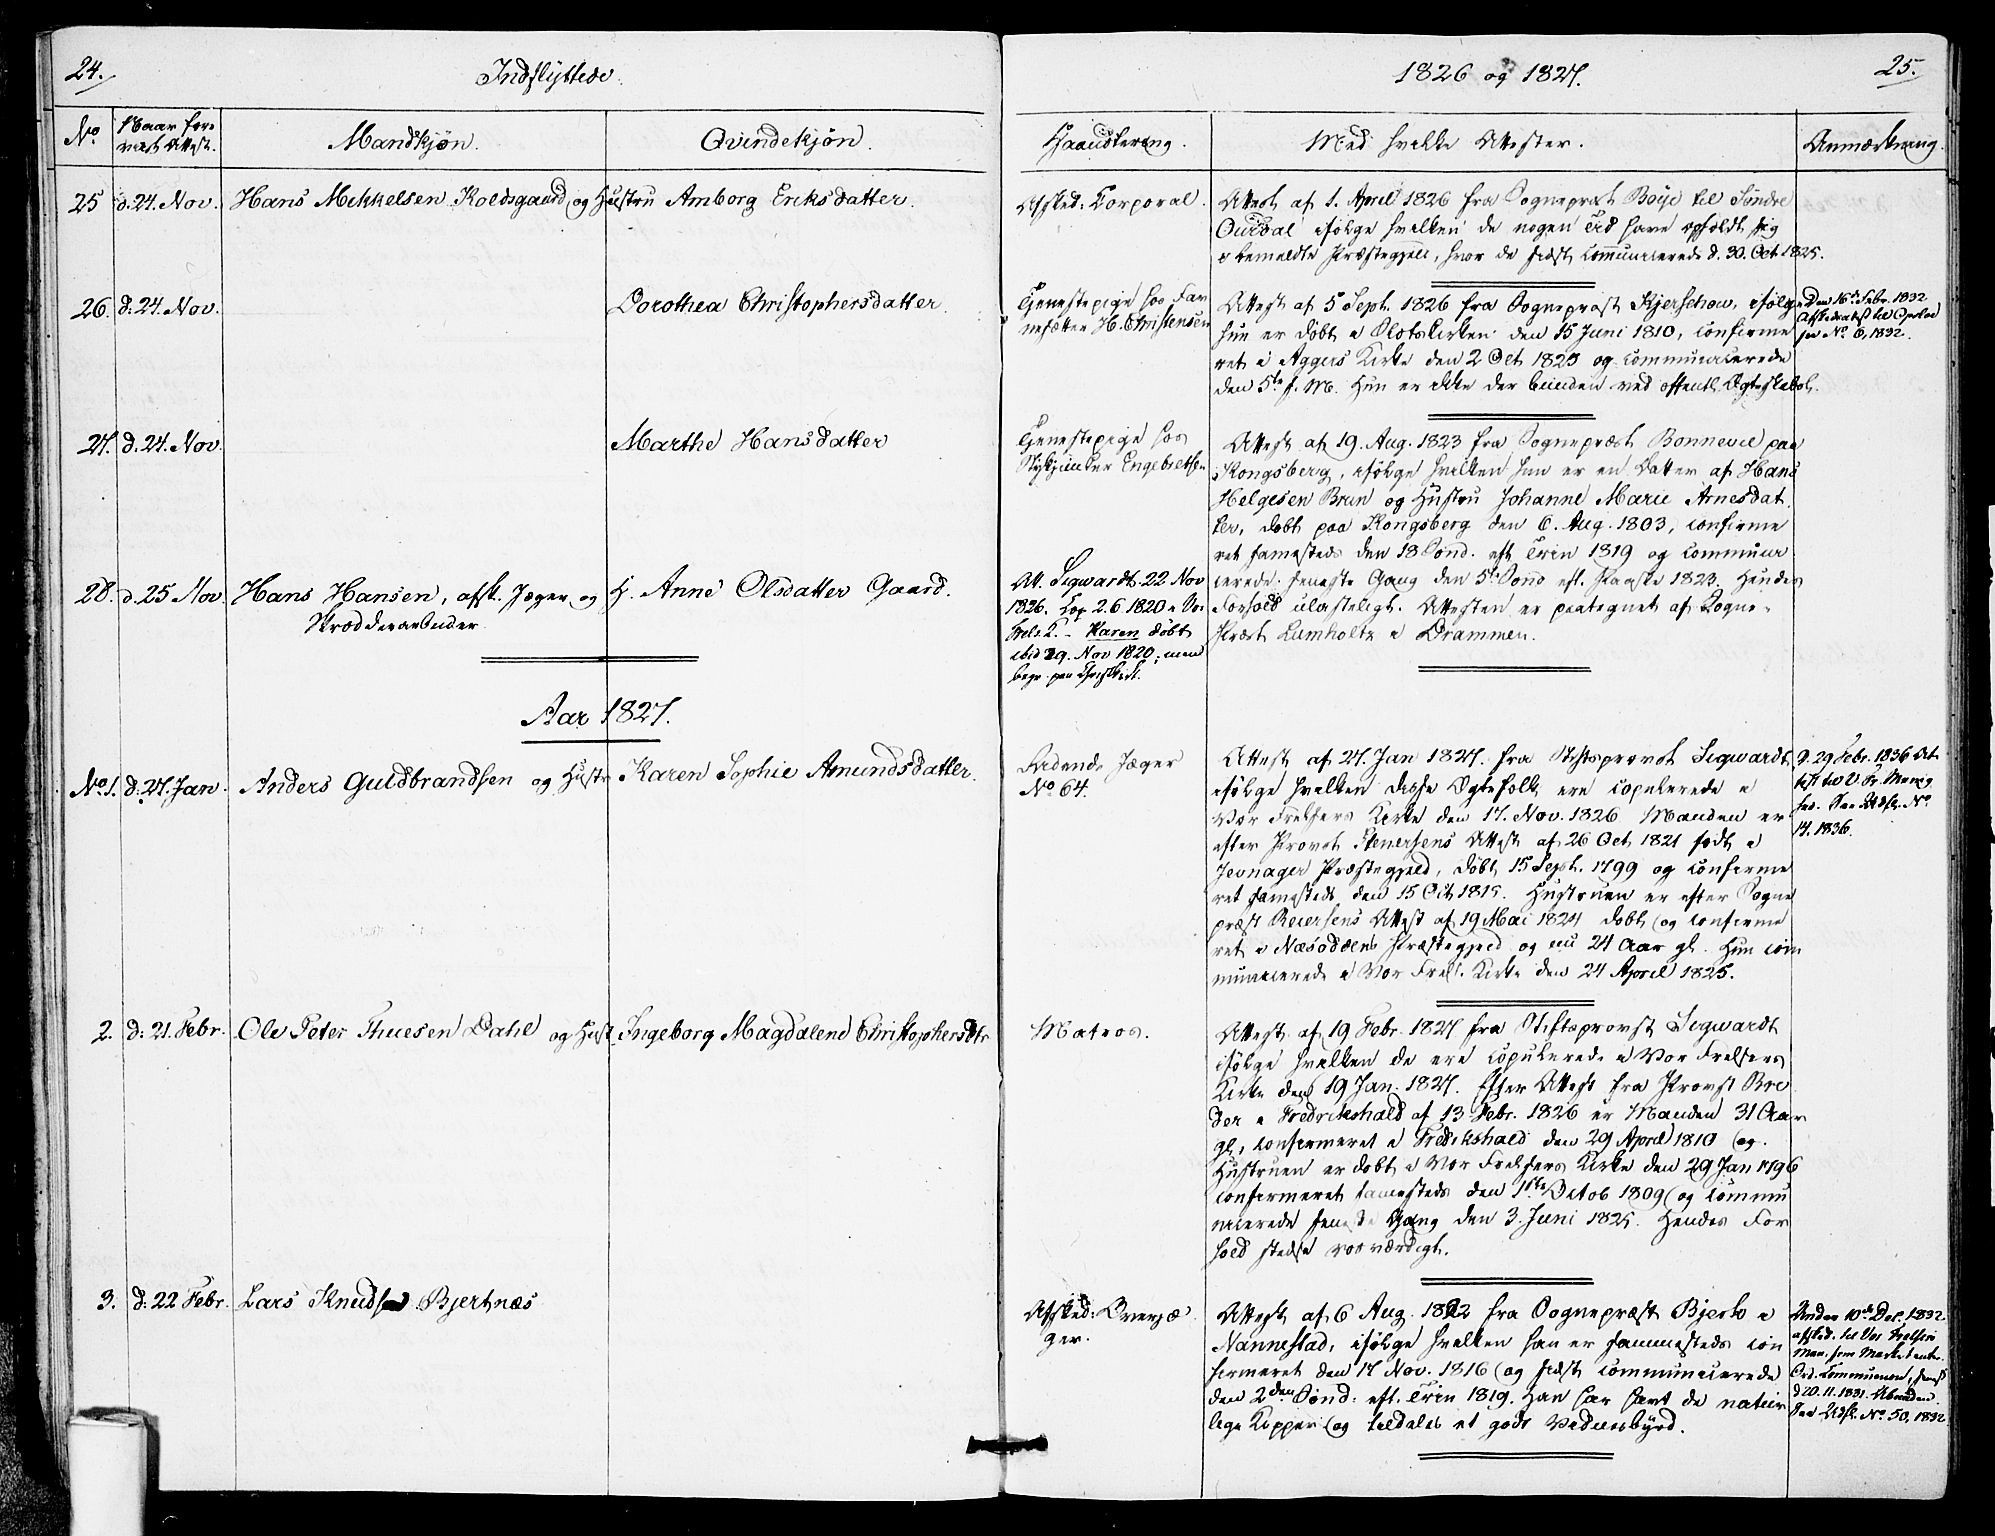 24.
Indflyttede.
No
Naar fore
vist Attest.
Mandkjøn.
Qvindekjøn.
25
d. 24. Nov.
Hans Mikkelsen Koldsgaard og Hustru Amborg Eriksdatter.
26.
d. 24. Nov.
Dorothea Christophersdatter.
27.
d. 24. Nov.
Marthe Hansdatter
28.
d. 25 Nov.
Hans Hansen, afsk. Jæger og H. Anne Olsdatter Gaard.
Aar 1827.
No 1.
d. 27. Jan.
Anders Guldbrandsen og Hustr. Karen Sophie Amundsdatter.
2.
d: 21. Febr.
Ole Peter Thuesen Dahl og Hust. Ingeborg Magdalene Christophersdtr
3.
d: 22 Febr.
Lars Knudsen Bjertnæs
1826 og 1827.
25.
Haandtering.
Med hvilke Attester.
Anmærkning.
Afsked: Corporal.
Attest af 1. April 1826 fra Sognepræst Boye til Søndre
Ourdal ifølge hvilken de nogen Tid have opholdt sig
i bemeldte Præstegjeld, hvor de sidst communicerede d. 30. Oct 1825.
Tjenestepige hos Far
H. Christensen
Attest af 5 Sept. 1826 fra Sognepræst Kjerschow, ifølge
hun er døbt i Slotskirken den 15 Juni 1810, confirme
ret i Aggers Kirke den 2 Oct 1825 og communicerede
den 5te f. M. Hun er ikke der bunden ved offentl. Ægteskabsl.
Den 16de Febr. 1832
No 6, 1832.
Tjenestepige hos
Stykjunker Engebretsen
Attest af 19. Aug. 1823 fra Sognepræst Bonnevie paa
Kongsberg, ifølge hvilken hun er en Datter af Hans
Helgesen Brun og Hustru Johanne Marie Arnesdat
ter, døbt paa Kongsberg den 6. Aug. 1803, confirme
ret samesteds den 18 Sønd. eft Trin 1819 og communi
cerede seneste Gang den 5te Sønd eft. Paaske 1823. Hendes
Forhold ulasteligt. Attesten er paategnet af Sogne-
Præst Lumholtz i Drammen.
Att. Sigwardt 22 Nov
1826. Cop 2.6 1820 i Vor
Frels. K. - Karen døbt
ibid 29. Nov 1820; men
Ridende Jæger
No 64.
Attest af 27. Jan 1827. fra Stiftsprovst Sigwardt
ifølge hvilken disse Ægtefolk ere copulerede i
Vor Frelsers Kirke den 17. Nov. 1826 Manden er
efter Provst Stenersens Attest af 26 Oct 1821 født i
Jevnager Præstegjeld, døbt 15 Sept. 1799 og confirme
ret samesteds den 15 Oct 1815. Hustruen er efter Sogne
præst Reiersens Attest af 19 Mai 1824 døbt og confirme
ret i Næsoddens Præstegjeld og nu 24 Aar gl. Hun com
municerede i Vor Frels. Kirke den 24 April 1825.
D. 29 Febr. 1836 At
No
14. 1836.
Matros.
Attest af 19 Febr. 1827 fra Stiftsprovst Sigwardt
ifølge hvilken de ere copulerede i Vor Frelsers
Kirke den 19 Jan. 1827. Efter Attest fra Provst Bre
der i Fredrikshald af 13 Febr. 1826 er Manden 31 Aar
gl, confirmeret i Fredrikshald den 29 April 1810 og
Hustruen er døbt i Vor Frelsers Kirke den 29 Jan 1796
confirmeret samesteds den 1ste Octob 1809 og commu
nicerede seneste Gang den 3. Juni 1825. Hendes For
hold stedse rosværdigt.
Afsked: Overjæ
ger.
Attest af 6 Aug. 1822 fra Sognepræst Bjerk i
Nannestad, ifølge hvilken han er sammesteds con
firmeret den 17 Nov. 1816 og sidst communicerede
den 2den Sønd: eft. Trin 1819. Han har havt de natur
lige Kopper og tildeles et godt Vidnesbyrd.
Under 10de Dec. 1832.
afsked. til Vor Frelsers
d 20.11.1831.
See Udfl. No 50, 1832.